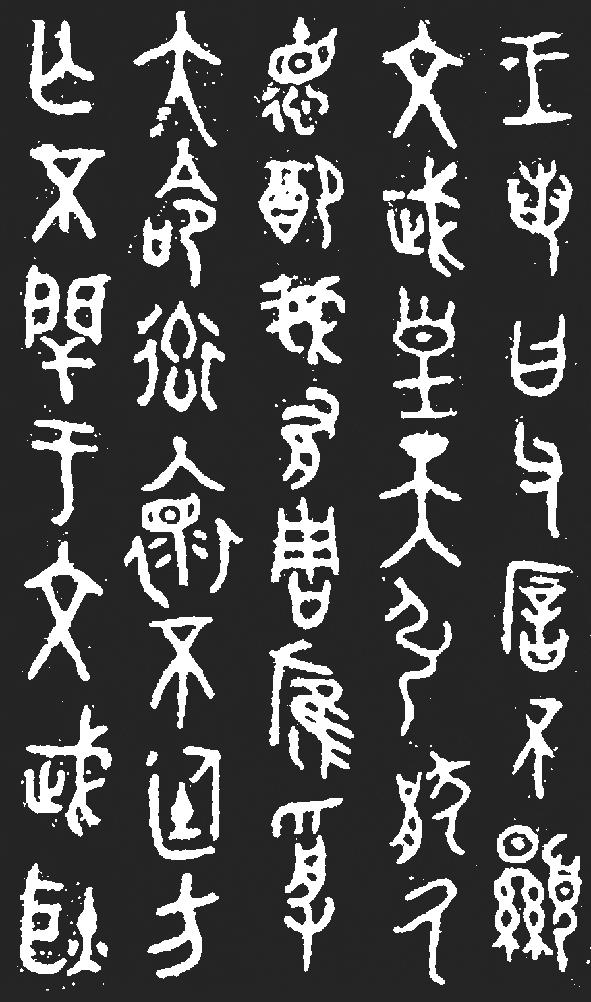 王若曰父厝不顯
文武皇天引猒氒
德配我有周膺受
大命率褱不廷方
亡不閈于文武耿